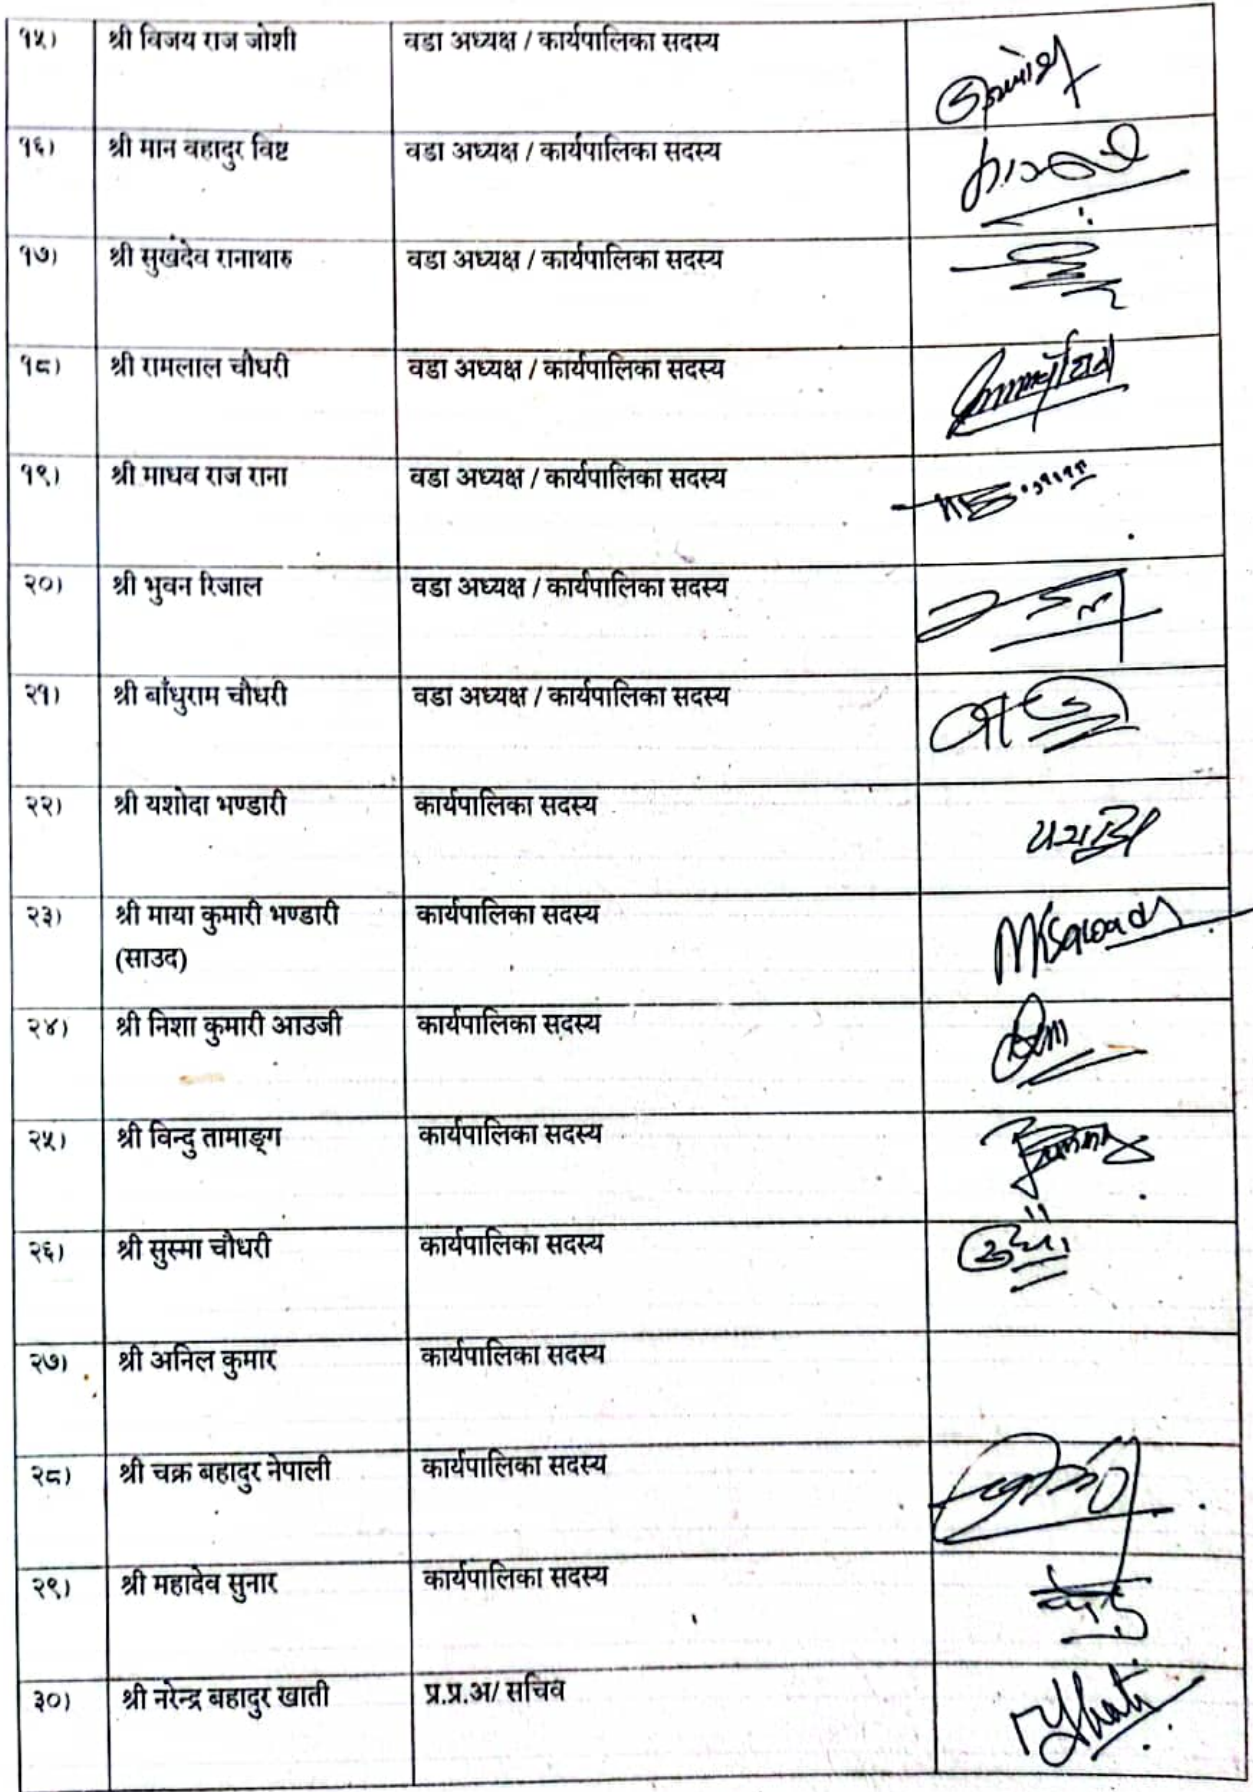 १५) श्री विजय राज जोशी वडा अध्यक्ष / कार्यपालिका सदस्य
१६) श्री मान बहादुर विष्ट वडा अध्यक्ष / कार्यपालिका सदस्य
१७) श्री सुखदेव रानाथारु वडा अध्यक्ष / कार्यपालिका सदस्य
१८) श्री रामलाल चौधरी वडा अध्यक्ष / कार्यपालिका सदस्य
१९) श्री माधव राज राना वडा अध्यक्ष / कार्यपालिका सदस्य
२०) श्री भुवन रिजाल वडा अध्यक्ष / कार्यपालिका सदस्य
२१) श्री बाँधुराम चौधरी वडा अध्यक्ष / कार्यपालिका सदस्य
२२) श्री यशोदा भण्डारी कार्यपालिका सदस्य
२३) श्री माया कुमारी भण्डारी कार्यपालिका सदस्य
(साउद)
२४) श्री निशा कुमारी आउजी कार्यपालिका सदस्य
२५) श्री विन्दु तामाङ्ग कार्यपालिका सदस्य
२६) श्री सुस्मा चौधरी कार्यपालिका सदस्य
२७) श्री अनिल कुमार कार्यपालिका सदस्य
२८) श्री चक्र बहादुर नेपाली कार्यपालिका सदस्य
२९) श्री महादेव सुनार कार्यपालिका सदस्य
३०) श्री नरेन्द्र बहादुर खाती प्र.प्र.अ/ सचिव